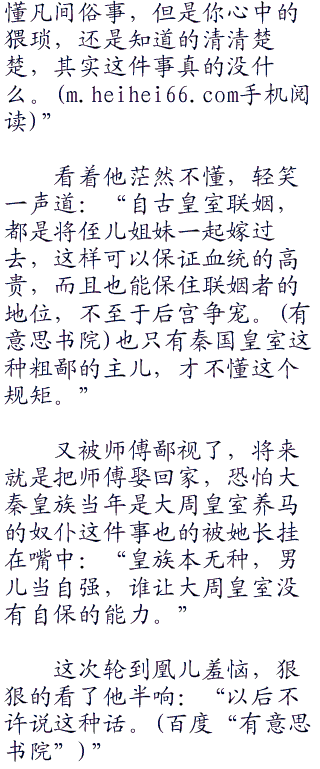 懂凡间俗事，但是你心中的
猥琐，还是知道的清清楚
楚，其实这件事真的没什
么。(m.heihei66.com手机阅
读)”
看着他茫然不懂，轻笑
一声道：“自古皇室联姻，
都是将侄儿姐妹一起嫁过
去，这样可以保证血统的高
贵，而且也能保住联姻者的
地位，不至于后宫争宠。(有
意思书院)也只有秦国皇室这
种粗鄙的主儿，才不懂这个
规矩。”
又被师傅鄙视了，将来
就是把师傅娶回家，恐怕大
秦皇族当年是大周皇室养马
的奴仆这件事也的被她长挂
在嘴中：“皇族本无种，男
儿当自强，谁让大周皇室没
有自保的能力。”
这次轮到凰儿羞恼，狠
狠的看了他半响：“以后不
许说这种话。(百度“有意思
书院”)”